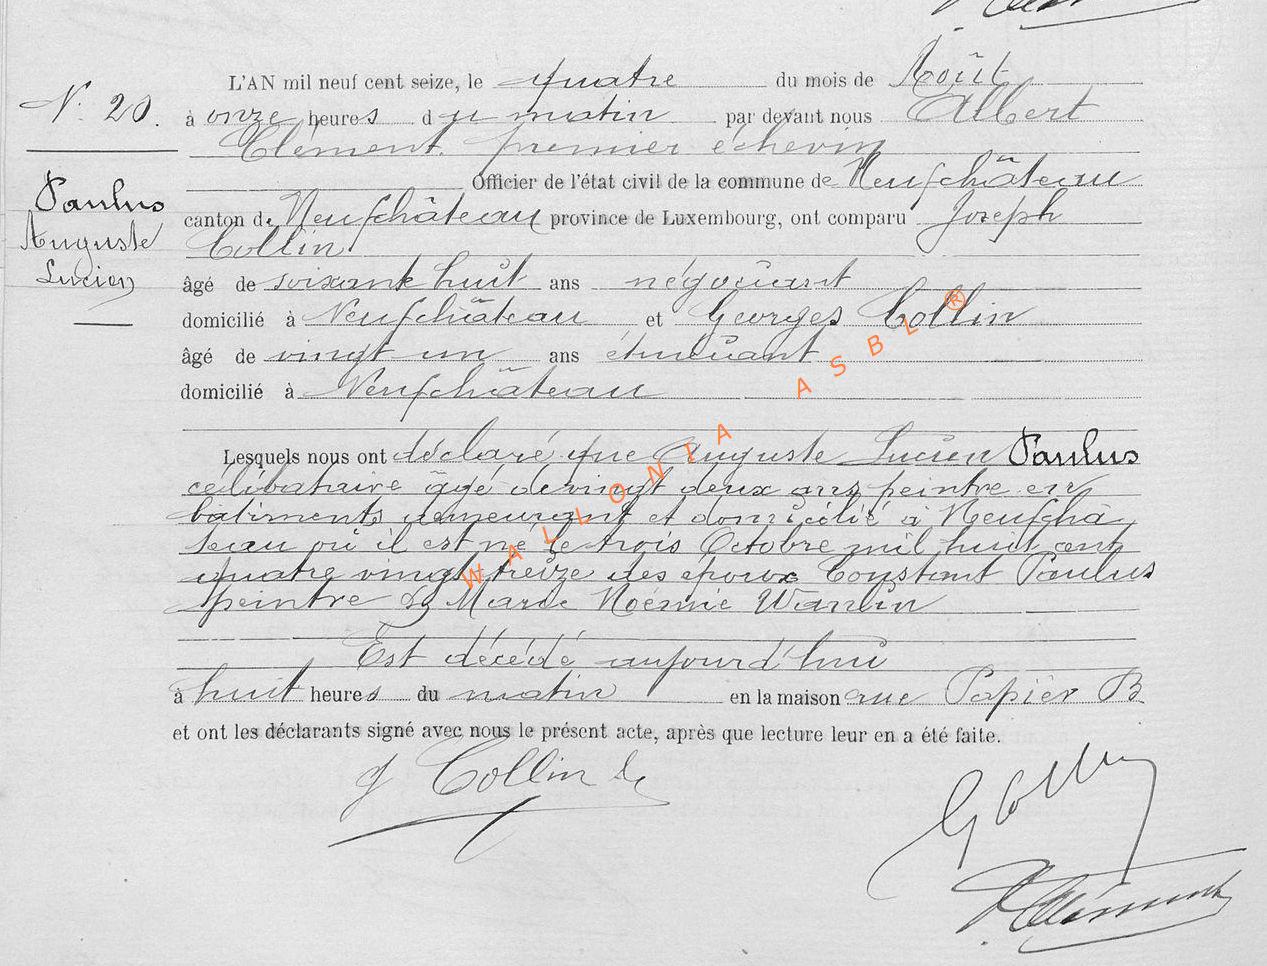 L'AN mil neuf cent seize, le quatre du mois de Août
N° 20. à onze heures du matin par devant nous Albert
Clément. premier échevin
Officier de l'état civil de la commune de Neufchâteau
Paulus
Auguste
Lucien
canton de Neufchâteau province de Luxembourg, ont comparu Joseph
Collin
âgé de soixante huit ans négociant
domicilié à Neufchâteau et Georges Collin
âgé de vingt un ans étudiant
domicilié à Neufchâteau
Lesquels nous ont déclaré que Auguste Lucien Paulus
célibataire âgé de vingt deux ans peintre en
batiments demeurant et domicilié à Neufchâ
teau où il est né le trois Octobre mil huit cent
quatre vingt treize des époux Constant Paulus
peintre & Marie Noémie
Est décédé aujourd'hui
à huit heures du matin en la maison rue Papier B
et ont les déclarants signé avec nous le présent acte, après que lecture leur en a été faite.
J Collin
G Collin
A Clément
WALLONIA ASBL ®